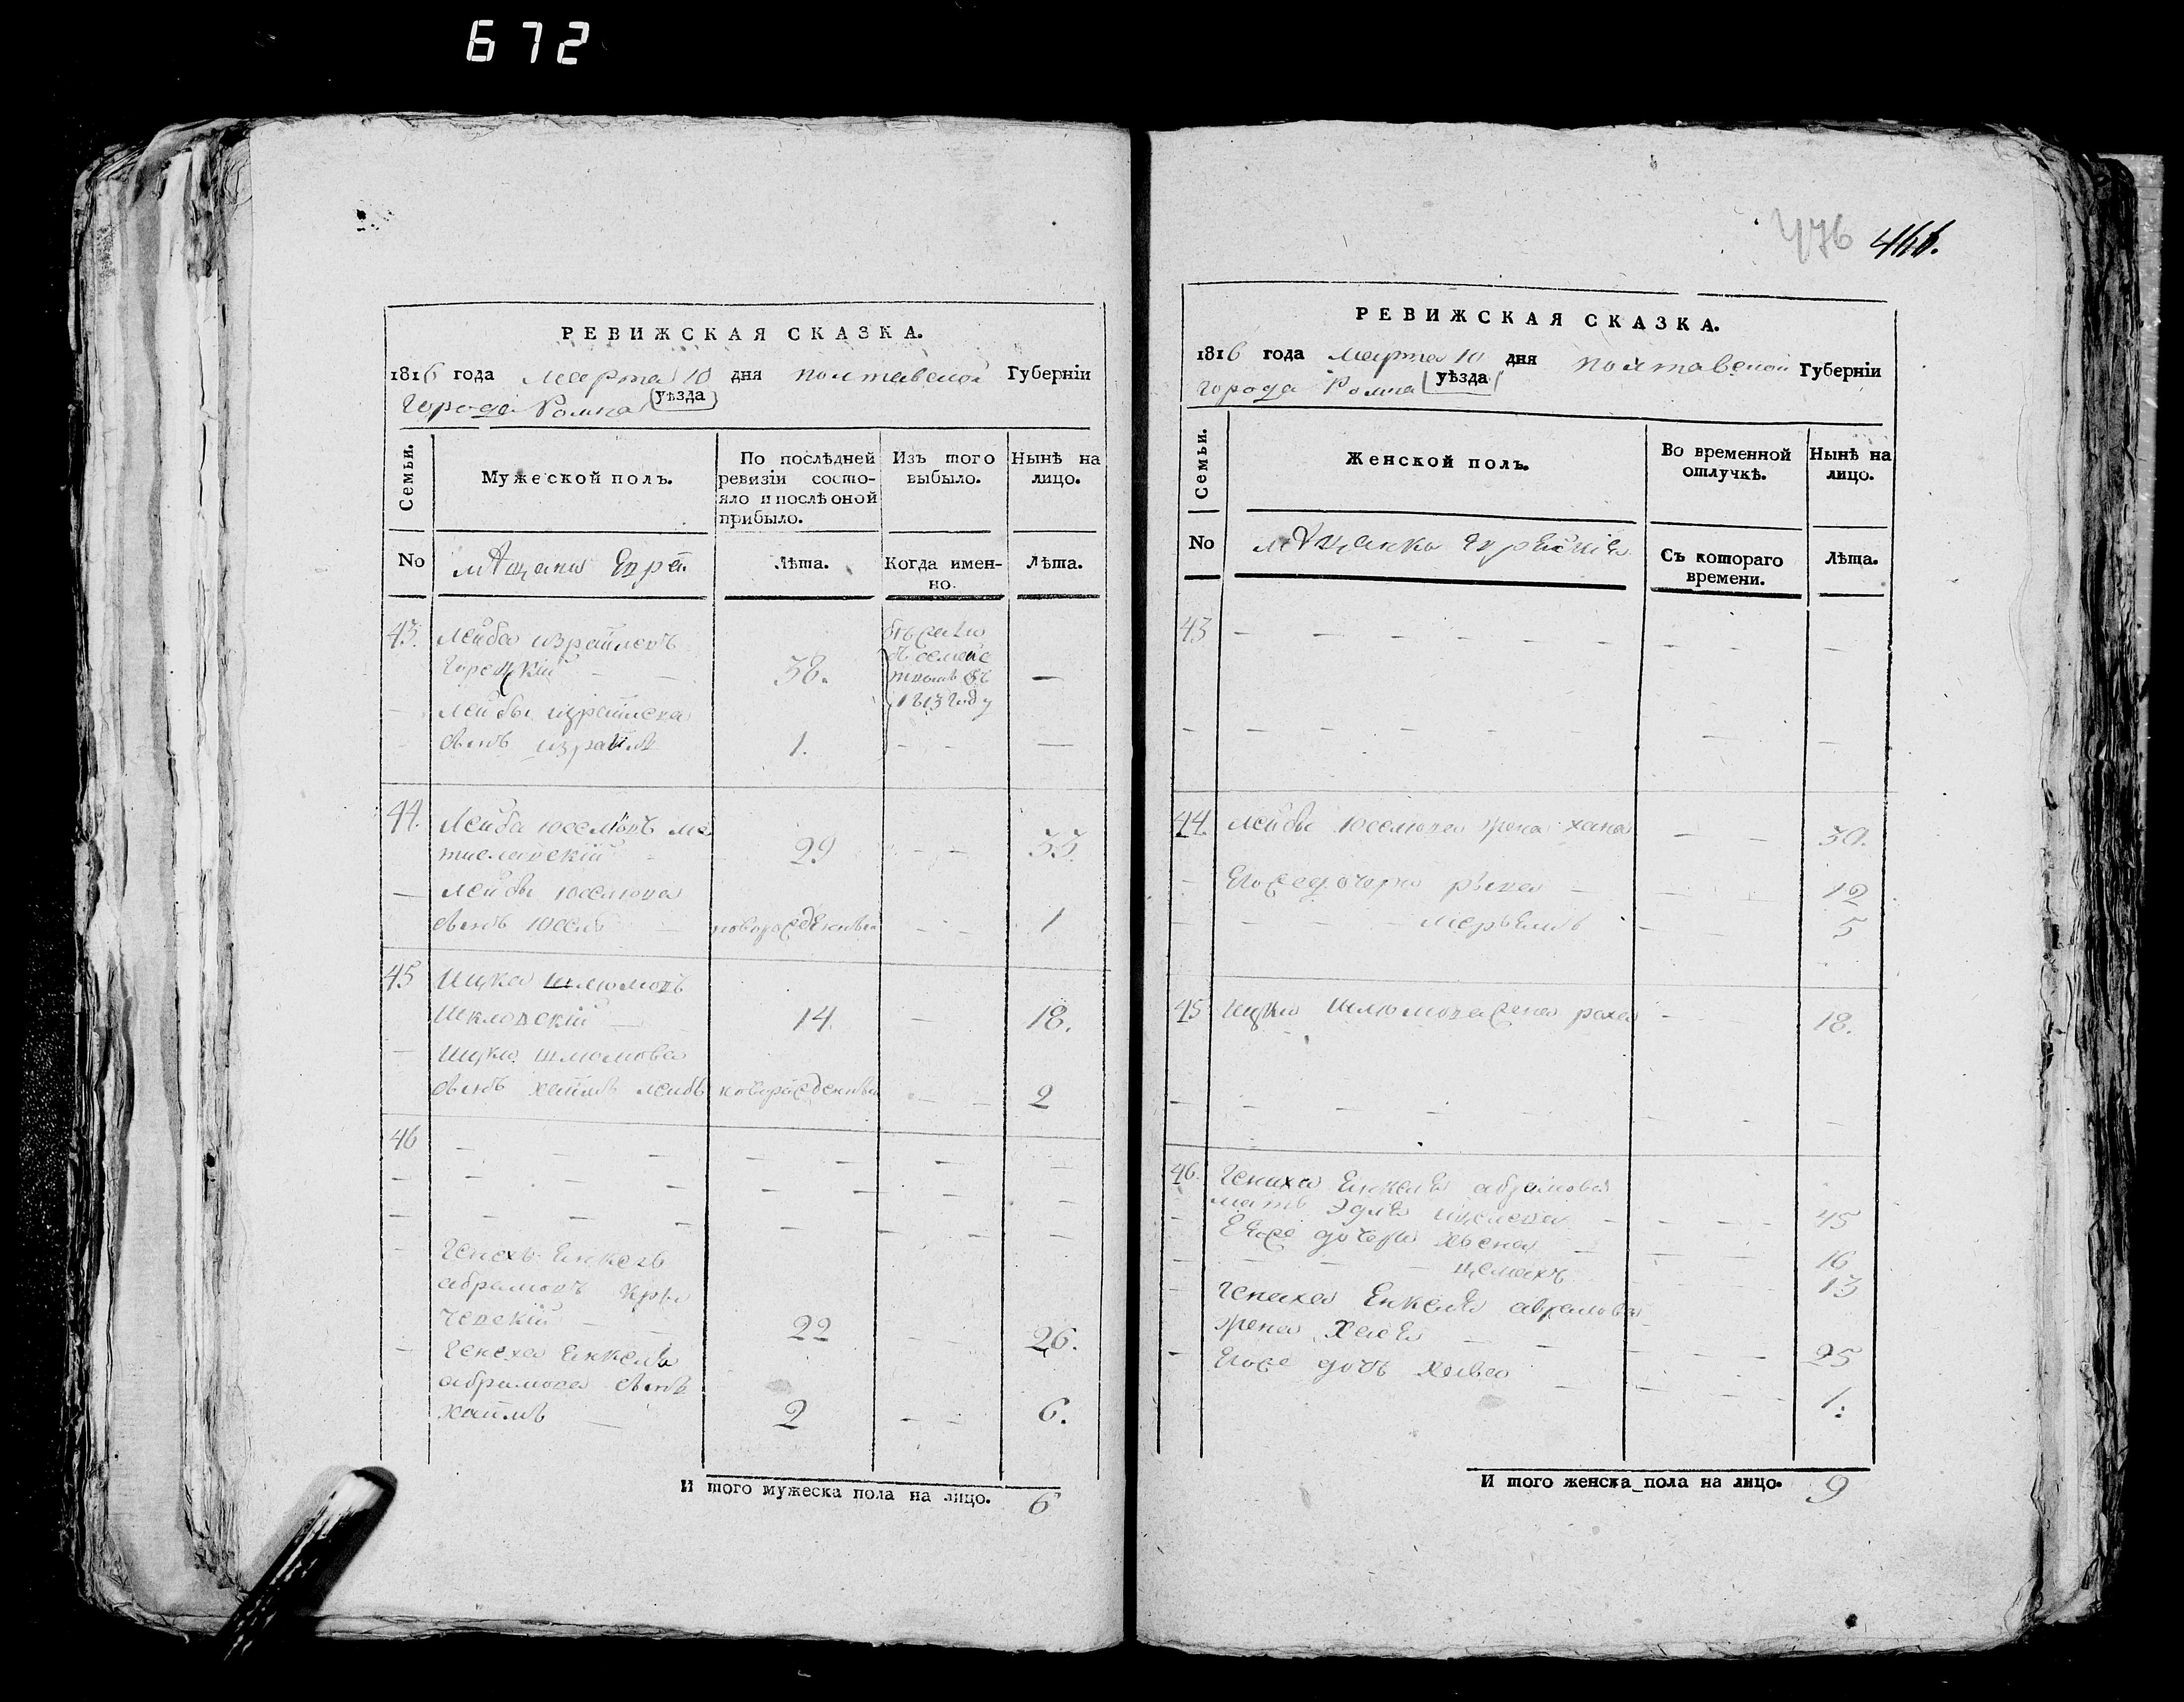 672
РЕВИЖСКАЯ СКАЗКА.
1816 года марта 10 дня полтавской Губерніи
города Ромна уѣзда
Семьи.
Мужеской полъ.
По послѣдней ревизіи состо-
яло и послѣ оной
прибыло.
Изъ того
выбыло.
Нынѣ на
лицо.
No
мѣщане Евреи
Лѣта.
Когда имен-
но.
Лѣта.
43. Лейба израилевъ
Горецкій 38. —
въ 1813 году
Лейбы израилева
сынъ израиль 1. — — —
44. Лейба иоселіовъ мс
тиславскій 29 — — 33.
— Лейбы иоселіова
сынъ иосель новорожденный — — 1
45 Ицка шлюмовъ
Шкловскій — 14. — 18.
— Ицки шлюмова
сынъ хаимъ лейбъ новорожденный — — 2
46 — — — — — — —
— — — — — — — —
— — — — — — — —
Генехъ Енкель
абрамовъ Кри
чевскій — — 22 — — 26.
— Генеха Енкеля
абрамова сынъ
хаимъ — 2 — — 6.
И того мужеска пола на лицо. 6
476 466.
РЕВИЖСКАЯ СКАЗКА.
1816 года марта 10 дня полтавской Губерніи
города Ромна уѣзда
Семьи.
Женской полъ.
Во временной
отлучкѣ.
Нынѣ на
лицо.
No
мѣщанки Еврейскія
Съ котораго
времени.
Лѣта.
43 — — — — — — — —
— — — — — — — —
44. Лейбы иоселіова жена хана — — 30.
— Егоже дочери рыва — 12
— — — — мерьямъ — — 5
45 Ицки шлюмова жена рохля — 18.
— — — — — — —
46. Гениха Енкеля абрамова
мать Эдля — — — 45
Еяже дочери хьена — — — 16
— — — — 13
Генеха Енкеля абрамова
жена Хася — — — 25
— Егоже дочь Хава — — — 1.
И того женска пола на лицо. 9